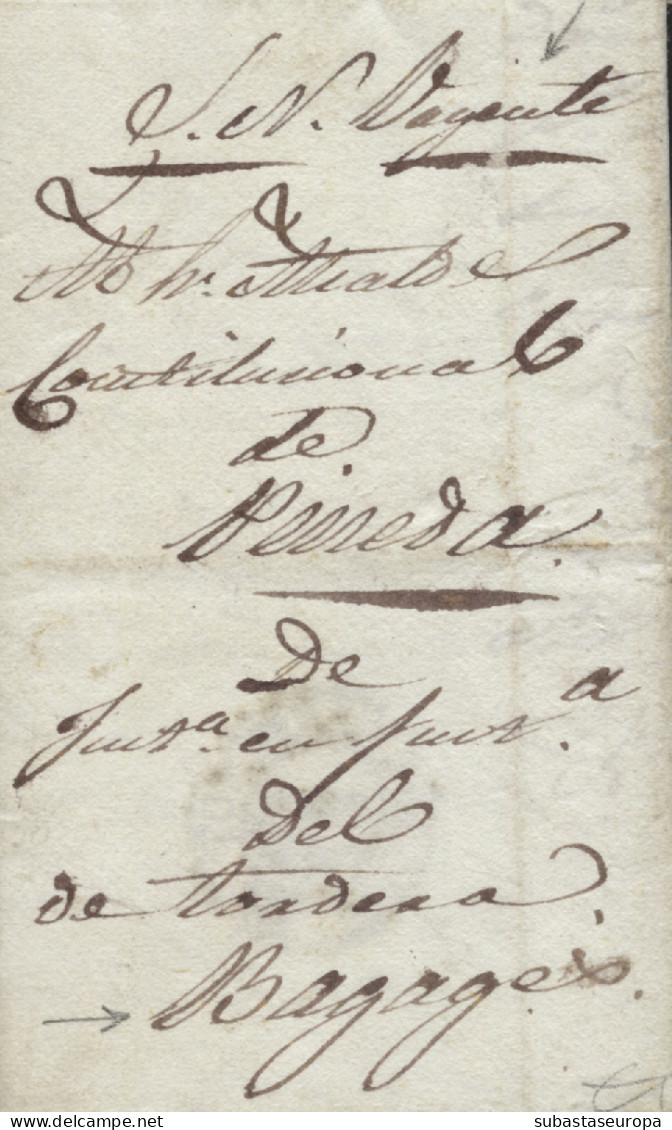 S. N. Vrgente
Al Sr. Alcalde
Constitucional
de
Pineda.
De
Justa. en Justa.
Del
de tordera.
Bagages.
delcampe.net
subastaseuropa